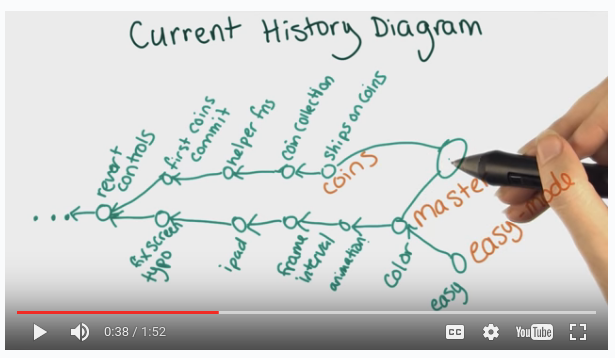 Current History Diagram
revert
controls
first coins
commit
helper fns
coin collection
ships on coins
coins
master
easy-mode
fix screen
typo
ipad
frame
interval
animation
color
easy
0:38 / 1:52
CC
YouTube